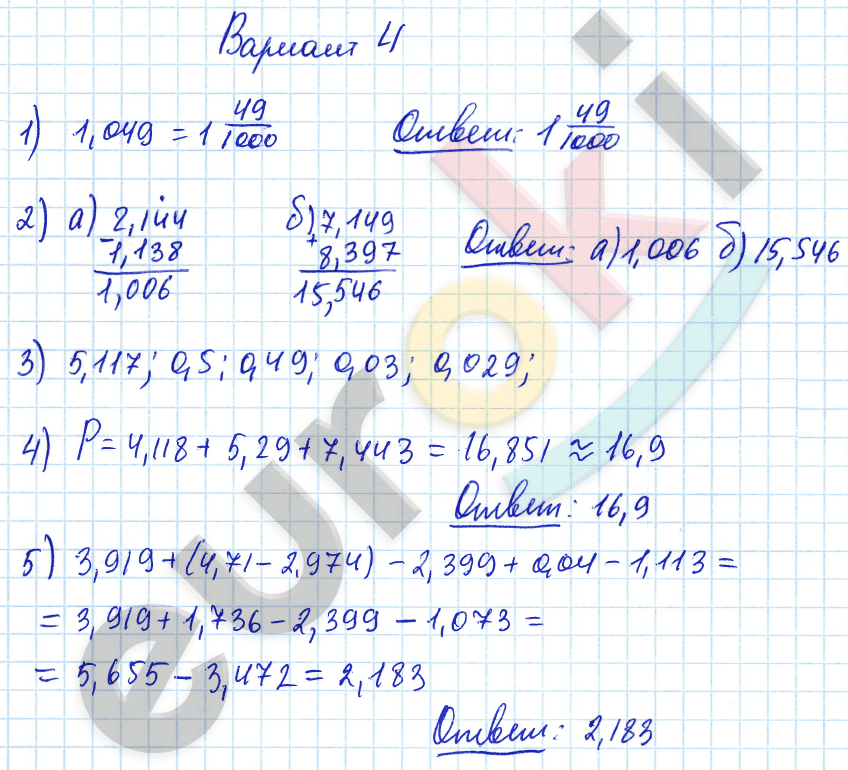 Вариант 4
1) 1,049 = 1 49/1000 Ответ: 1 49/1000
2) а) 2,144 б) 7,149 Ответ: а) 1,006 б) 15,546
- 1,138 + 8,397
1,006 15,546
3) 5,117; 0,5; 0,49; 0,03; 0,029;
4) P = 4,118 + 5,29 + 7,443 = 16,851 ≈ 16,9
Ответ: 16,9
5) 3,919 + (4,71 - 2,974) - 2,399 + 0,04 - 1,113 =
= 3,919 + 1,736 - 2,399 - 1,073 =
= 5,655 - 3,472 = 2,183
Ответ: 2,183
euroki